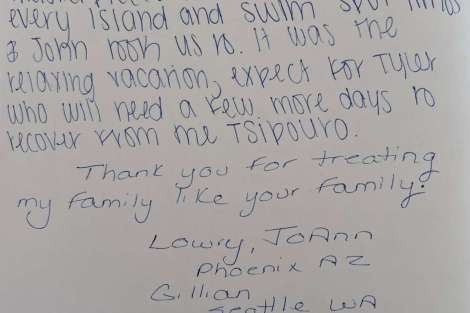 every island and swim spot
& John took us to. It was the
relaxing vacation, expect for Tyler
who will need a few more days to
recover from the Tsipouro.
Thank you for treating
my family like your family!
Lowry, JoAnn
Phoenix AZ
Gillian
Seattle WA